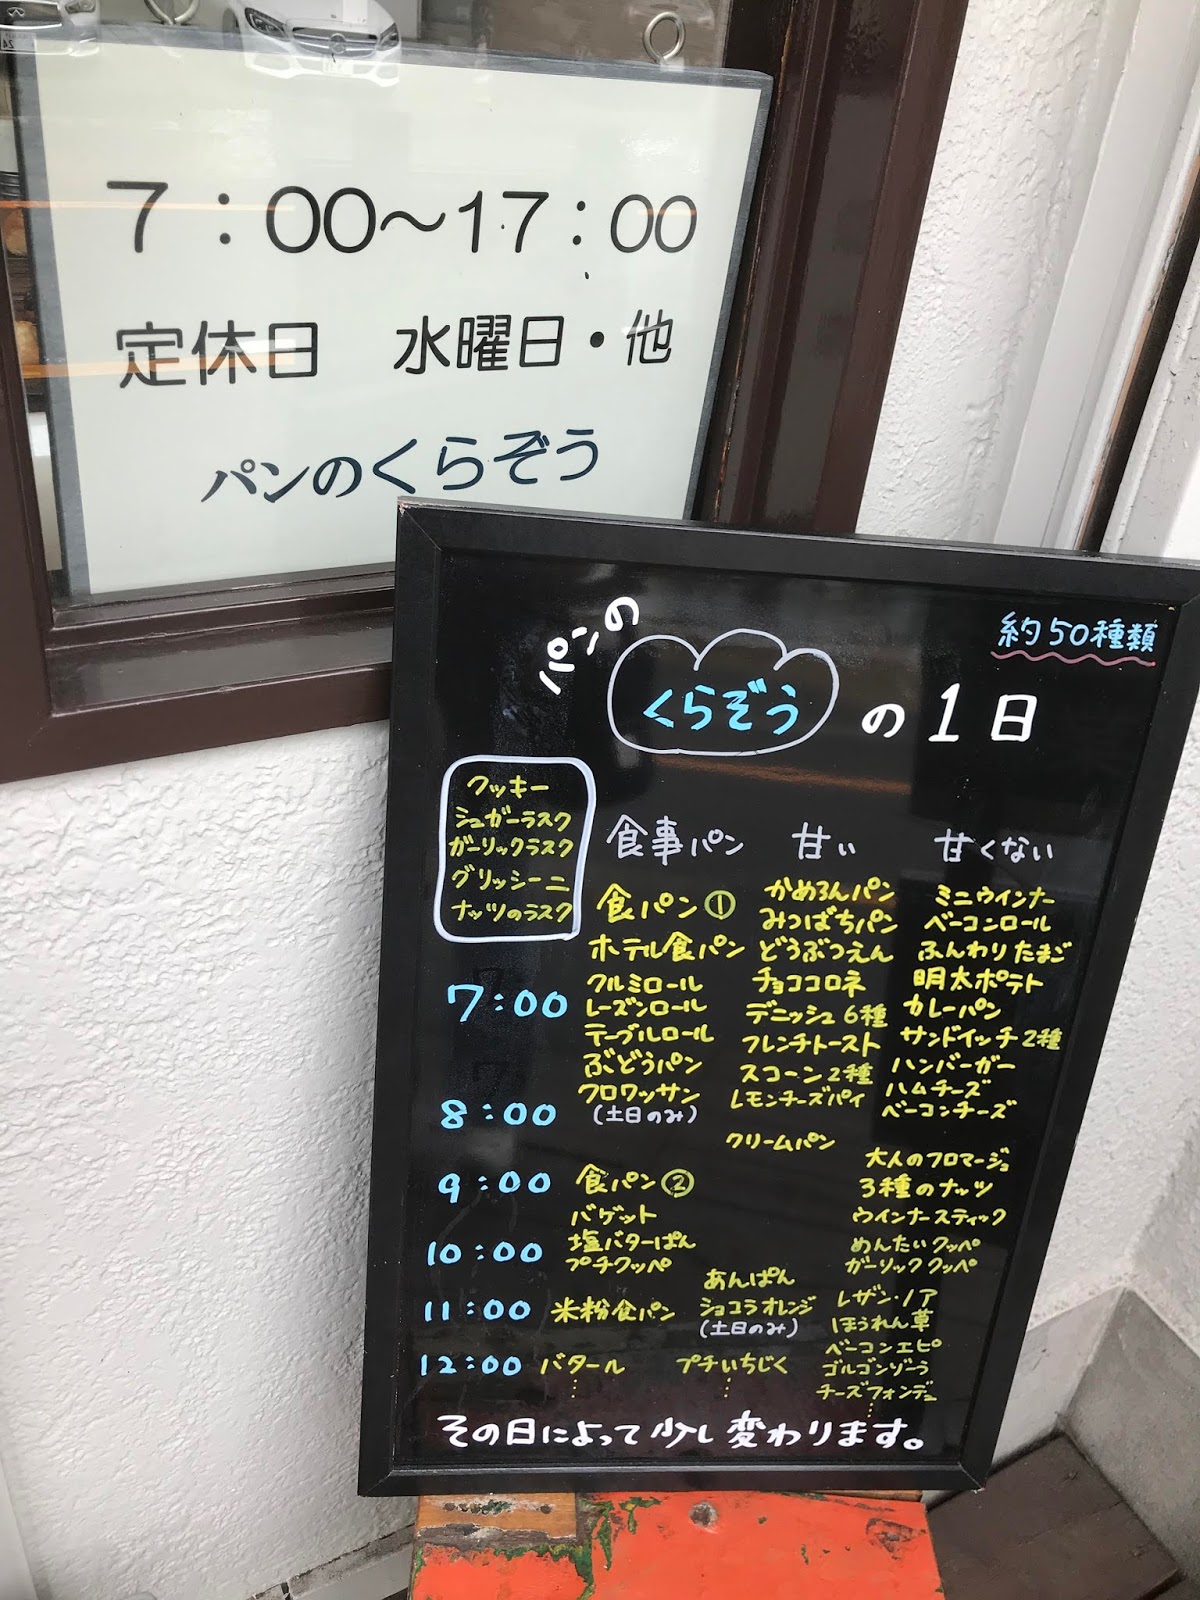 7：00～17：00
定休日 水曜日・他
パンのくらぞう
パンの
くらぞう の1日
約50種類
クッキー
シュガーラスク
ガーリックラスク
グリッシーニ
ナッツのラスク
食事パン 甘い 甘くない
食パン①
ホテル食パン
クルミロール
レーズンロール
テーブルロール
ぶどうパン
クロワッサン
(土日のみ)
かめろんパン
みつばちパン
どうぶつえん
チョココロネ
デニッシュ6種
フレンチトースト
スコーン2種
レモンチーズパイ
クリームパン
ミニウインナー
ベーコンロール
ふんわりたまご
明太ポテト
カレーパン
サンドイッチ2種
ハンバーガー
ハムチーズ
ベーコンチーズ
7:00
8:00
9:00 食パン②
バゲット
10:00 塩バターぱん
プチクッペ
大人のフロマージュ
3種のナッツ
ウインナースティック
めんたいクッペ
ガーリッククッペ
11:00 米粉食パン
あんぱん
ショコラオレンジ
(土日のみ)
レザン・ノア
ほうれん草
ベーコンエピ
ゴルゴンゾーラ
チーズフォンデュ
12:00 バタール プチいちじく
その日によって少し変わります。